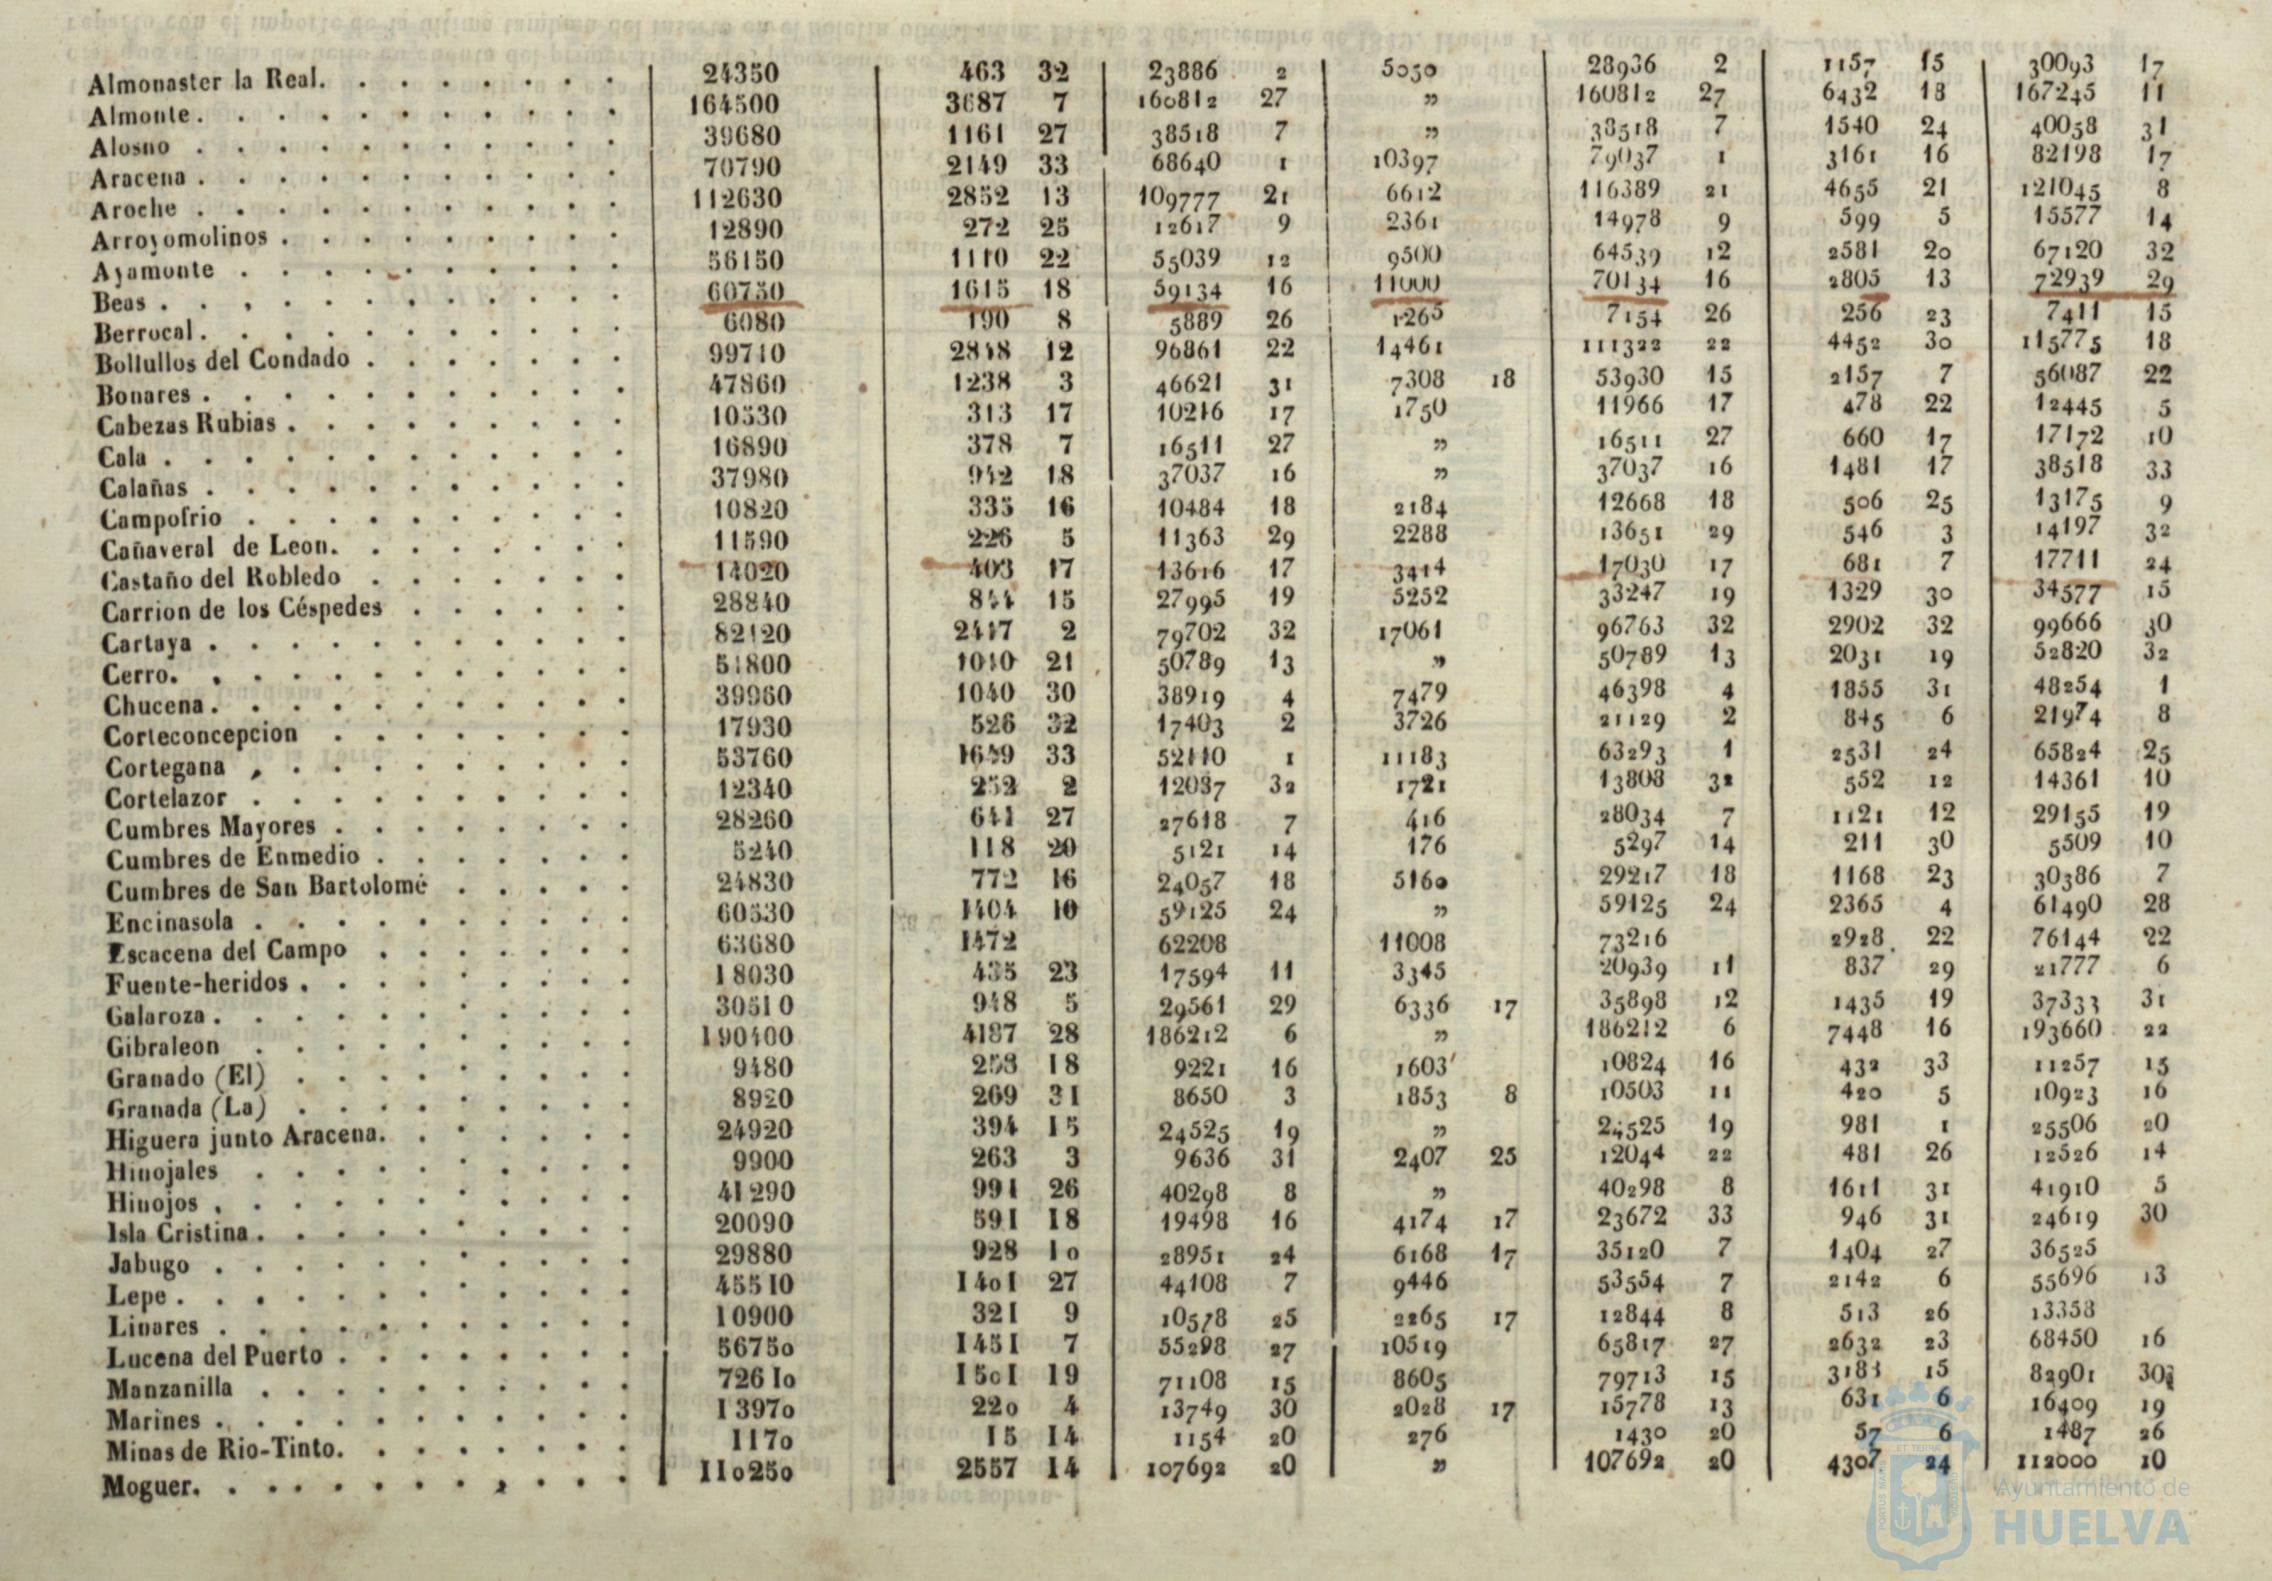 Almonaster la Real. 24350 463 32 23886 2 5050 28936 2 1157 15 30093 17
Almonte. 164500 3687 7 160812 27 „ 160812 27 6432 18 167245 11
Alosno 39680 1161 27 38518 7 „ 38518 7 1540 24 40058 31
Aracena. 70790 2149 33 68640 1 10397 79037 1 3161 16 82198 17
Aroche 112630 2852 13 109777 21 6612 116389 21 4655 21 121045 8
Arroyomolinos. 12890 272 25 12617 9 2361 14978 9 599 5 15577 14
Ayamonte 56150 1110 22 55039 12 9500 64539 12 2581 20 67120 32
Beas. 60750 1615 18 59134 16 11000 70134 16 2805 13 72939 29
Berrocal. 6080 190 8 5889 26 1265 7154 26 256 23 7411 15
Bollullos del Condado 99710 2848 12 96861 22 14461 111322 22 4452 30 115775 18
Bonares. 47860 1238 3 46621 31 7308 18 53930 15 2157 7 56087 22
Cabezas Rubias. 10530 313 17 10216 17 1750 11966 17 478 22 12445 5
Cala 16890 378 7 16511 27 „ 16511 27 660 17 17172 10
Calañas 37980 942 18 37037 16 „ 37037 16 1481 17 38518 33
Campofrio 10820 335 16 10484 18 2184 12668 18 506 25 13175 9
Cañaveral de Leon. 11590 226 5 11363 29 2288 13651 29 546 3 14197 32
Castaño del Robledo 14020 403 17 13616 17 3414 17030 17 681 7 17711 24
Carrion de los Céspedes 28840 844 15 27995 19 5252 33247 19 1329 30 34577 15
Cartaya 82120 2417 2 79702 32 17061 96763 32 2902 32 99666 30
Cerro. 51800 1010 21 50789 13 „ 50789 13 2031 19 52820 32
Chucena. 39960 1040 30 38919 4 7479 46398 4 1855 31 48254 1
Corteconcepcion 17930 526 32 17403 2 3726 21129 2 845 6 21974 8
Cortegana 53760 1649 33 52110 1 11183 63293 1 2531 24 65824 25
Cortelazor 12340 252 2 12087 32 1721 13808 32 552 12 14361 10
Cumbres Mayores 28260 641 27 27618 7 416 28034 7 1121 12 29155 19
Cumbres de Enmedio 5240 118 20 5121 14 176 5297 14 211 30 5509 10
Cumbres de San Bartolomé 24830 772 16 24057 18 5160 29217 18 1168 23 30386 7
Encinasola 60530 1404 10 59125 24 „ 59125 24 2365 4 61490 28
Escacena del Campo 63680 1472 62208 11008 73216 2928 22 76144 22
Fuente-heridos. 18030 435 23 17594 11 3345 20939 11 837 29 21777 6
Galaroza. 30510 948 5 29561 29 6336 17 35898 12 1435 19 37333 31
Gibraleon 190400 4187 28 186212 6 „ 186212 6 7448 16 193660 22
Granado (El) 9480 258 18 9221 16 1603 10824 16 432 33 11257 15
Granada (La) 8920 269 31 8650 3 1853 8 10503 11 420 5 10923 16
Higuera junto Aracena. 24920 394 15 24525 19 „ 24525 19 981 1 25506 20
Hinojales 9900 263 3 9636 31 2407 25 12044 22 481 26 12526 14
Hinojos. 41290 991 26 40298 8 „ 40298 8 1611 31 41910 5
Isla Cristina. 20090 591 18 19498 16 4174 17 23672 33 946 31 24619 30
Jabugo 29880 928 10 28951 24 6168 17 35120 7 1404 27 36525
Lepe. 45510 1401 27 44108 7 9446 53554 7 2142 6 55696 13
Linares 10900 321 9 10578 25 2265 17 12844 8 513 26 13358
Lucena del Puerto 56750 1451 7 55298 27 10519 65817 27 2632 23 68450 16
Manzanilla 72610 1501 19 71108 15 8605 79713 15 3188 15 82901 30
Marines. 13970 220 4 13749 30 2028 17 15778 13 631 6 16409 19
Minas de Rio-Tinto. 1170 15 14 1154 20 276 1430 20 57 6 1487 26
Moguer. 110250 2557 14 107692 20 „ 107692 20 4307 24 112000 10
Ayuntamiento de
HUELVA